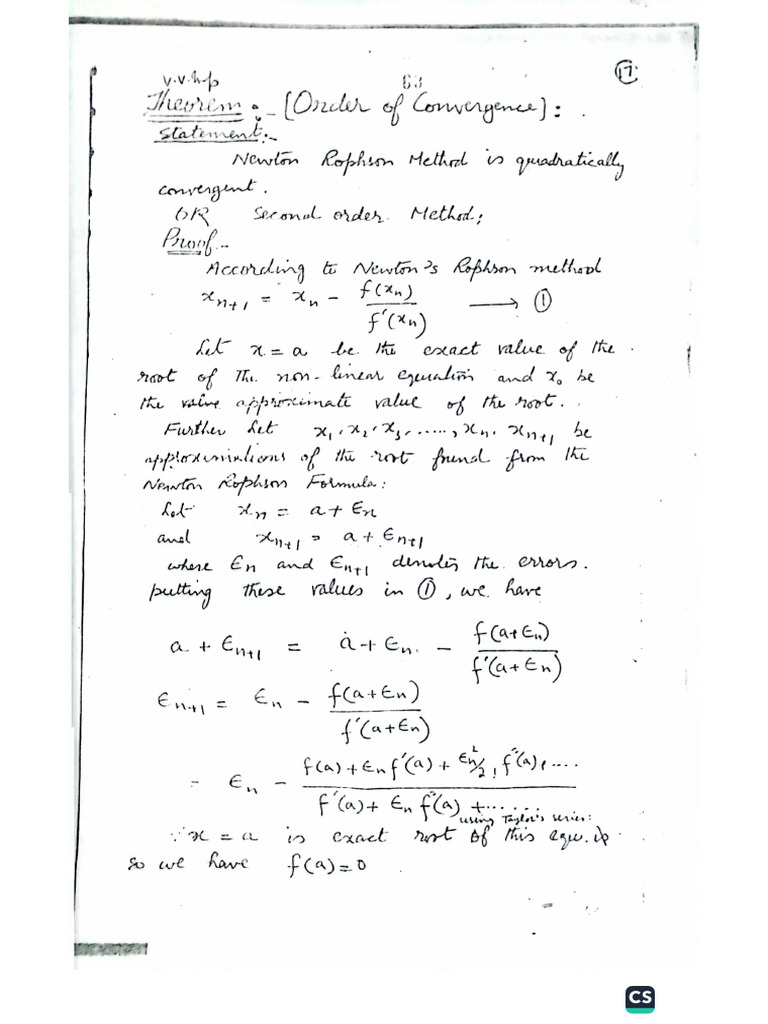 V.V.Imp 63 17
Theorem :- [Order of Convergence] :
Statement:-
Newton Rophson Method is quadratically
convergent.
OR Second order Method;
Proof -
According to Newton's Rophson method
x_{n+1} = x_n - f(x_n) / f'(x_n) ⟶ ①
Let x = a be the exact value of the
root of the non-linear equation and x_0 be
the approximate value of the root.
Further Let x_1, x_2, x_3, ....., x_n, x_{n+1} be
approximations of the root found from the
Newton Rophson Formula:
Let x_n = a + ϵ_n
and x_{n+1} = a + ϵ_{n+1}
where ϵ_n and ϵ_{n+1} denotes the errors.
putting these values in ①, we have
a + ϵ_{n+1} = a + ϵ_n - f(a+ϵ_n) / f'(a+ϵ_n)
ϵ_{n+1} = ϵ_n - f(a+ϵ_n) / f'(a+ϵ_n)
= ϵ_n - f(a) + ϵ_n f'(a) + ϵ_n^2/2! f''(a), .... / f'(a) + ϵ_n f''(a) + ......
using Taylor's series:
∵ x = a is exact root of this equ.
So we have f(a) = 0
CS